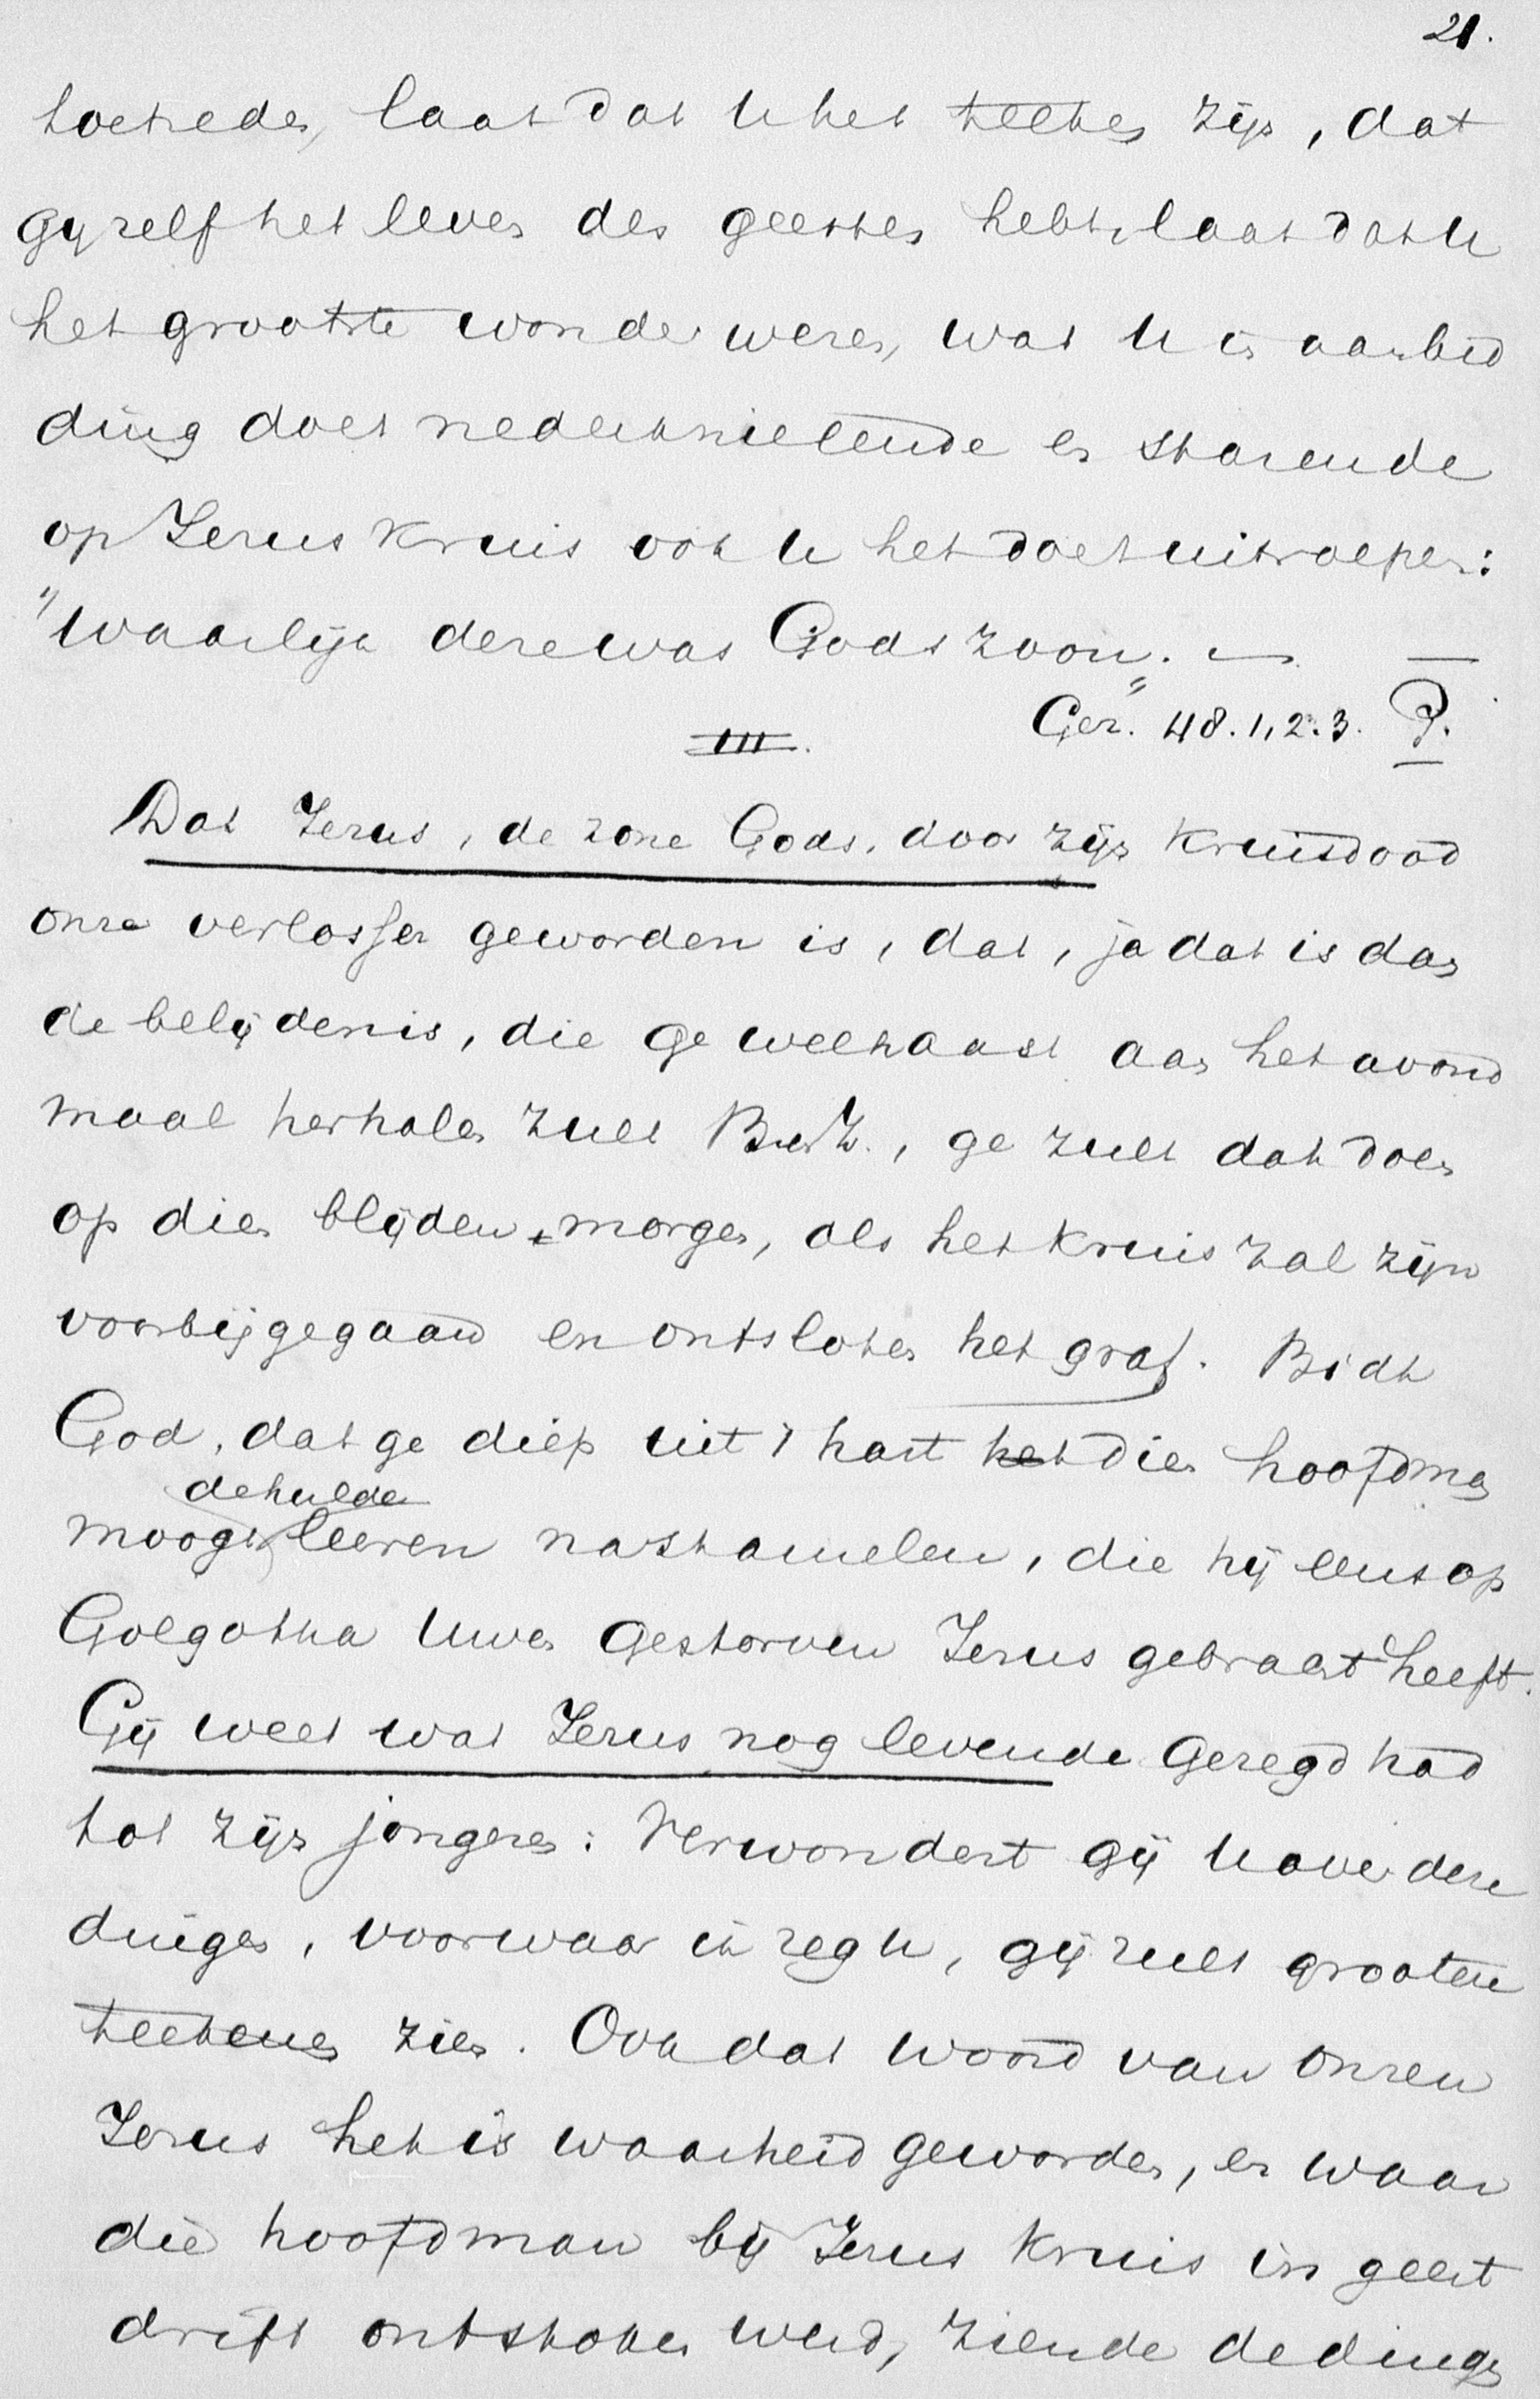 21.
toetreden, laat dat U het teeken zijn, dat
gij zelf het leven des geestes hebt, laat dat U
het grootste wonder wezen, wat U in aanbid
ding doet nederknielende en starende
op Jezus kruis ook U het doet uitroepen:
"Waarlijk deze was Gods zoon." —
Gez. 48. 1, 2. 3. P.
III.
Dat Jezus, de zone Gods, door zijn kruisdood
onze verlosser geworden is, dat, ja dat is dan
de belijdenis, die ge weldhaast aan het avond
maal herhalen zult B. en Z., ge zult dat doen
op dien blijden morgen, als het kruis zal zijn
voorbijgegaan en ontsloten het graf. Bidt
God, dat ge diep uit 't hart het dien hoofdman
de hulde
moogt leeren nastamelen, die hij eens op
Golgotha Uwen gestorven Jezus gebracht heeft.
Gij weet wat Jezus nog levende gezegd had
tot zijn jongeren: Verwondert gij U over deze
dingen, voorwaar ik zeg U, gij zult grootere
teekenen zien. Ook dat woord van onzen
Jezus het is waarheid geworden, en waar
die hoofdman bij Jezus kruis in geest
drift ontstoken werd, ziende de dingen